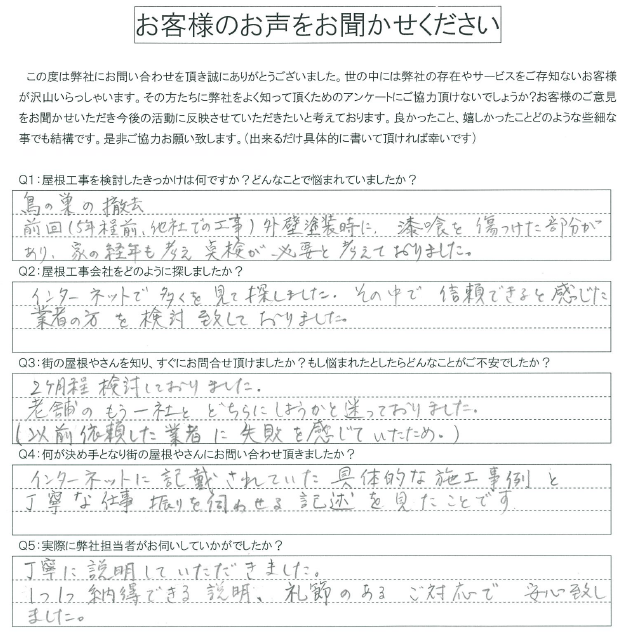 お客様のお声をお聞かせください
この度は弊社にお問い合わせを頂き誠にありがとうございました。世の中には弊社の存在やサービスをご存知ないお客様
が沢山いらっしゃいます。その方たちに弊社をよく知って頂くためのアンケートにご協力頂けないでしょうか?お客様のご意見
をお聞かせいただき今後の活動に反映させていただきたいと考えております。良かったこと、嬉しかったことどのような些細な
事でも結構です。是非ご協力お願い致します。(出来るだけ具体的に書いて頂ければ幸いです)
Q1:屋根工事を検討したきっかけは何ですか?どんなことで悩まれていましたか?
鳥の巣の撤去
前回(5年程前、他社での工事)外壁塗装時に、漆喰を傷つけた部分が
あり、家の経年も考え点検が必要と考えておりました。
Q2:屋根工事会社をどのように探しましたか?
インターネットで多くを見て探しました。その中で信頼できると感じた
業者の方を検討致しておりました。
Q3:街の屋根やさんを知り、すぐにお問合せ頂けましたか?もし悩まれたとしたらどんなことがご不安でしたか?
2ヶ月程検討しておりました。
老舗のもう一社とどちらにしようかと迷っておりました。
(以前依頼した業者に失敗を感じていたため。)
Q4:何が決め手となり街の屋根やさんにお問い合わせ頂きましたか?
インターネットに記載されていた具体的な施工事例と
丁寧な仕事振りを伺わせる記述を見たことです
Q5:実際に弊社担当者がお伺いしていかがでしたか?
丁寧に説明していただきました。
1つ1つ納得できる説明、礼節のあるご対応で安心致し
ました。